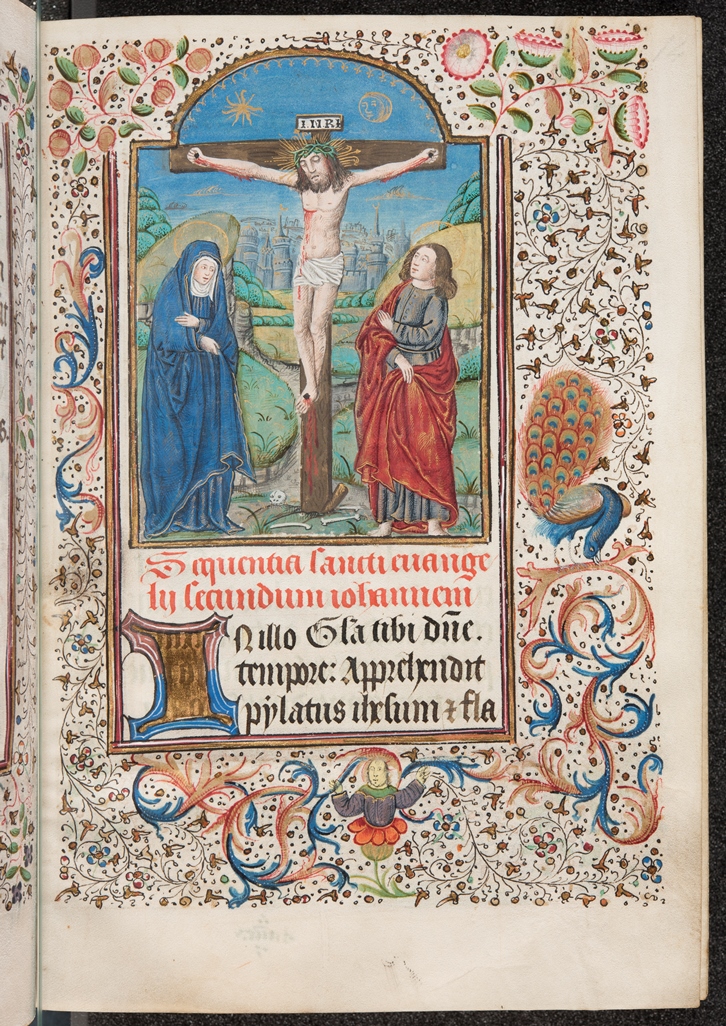 INRI
Sequentia sancti euange
lij secundum iohannem
IN illo Gl̄a tibi dn̄e.
tempore: Apprehendit
pylatus ihesum ⁊ fla